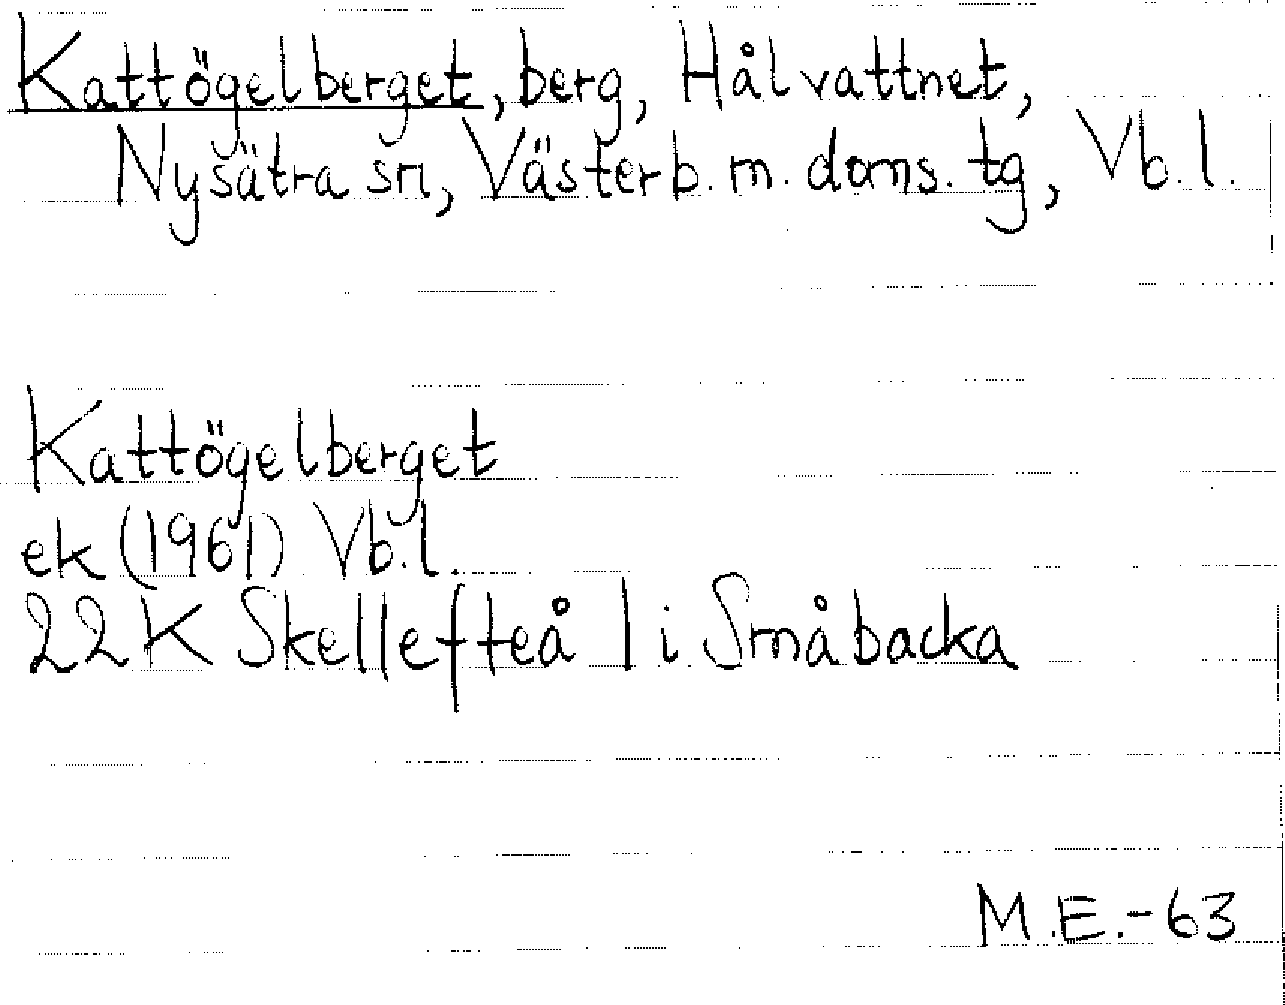 Kattögelberget, berg, Hålvattnet,
Nysätra sn, Västerb. m. doms. tg, Vb. l.
Kattögelberget
ek (1961) Vb. l.
22 K Skellefteå 1 i Småbacka
M.E.-63